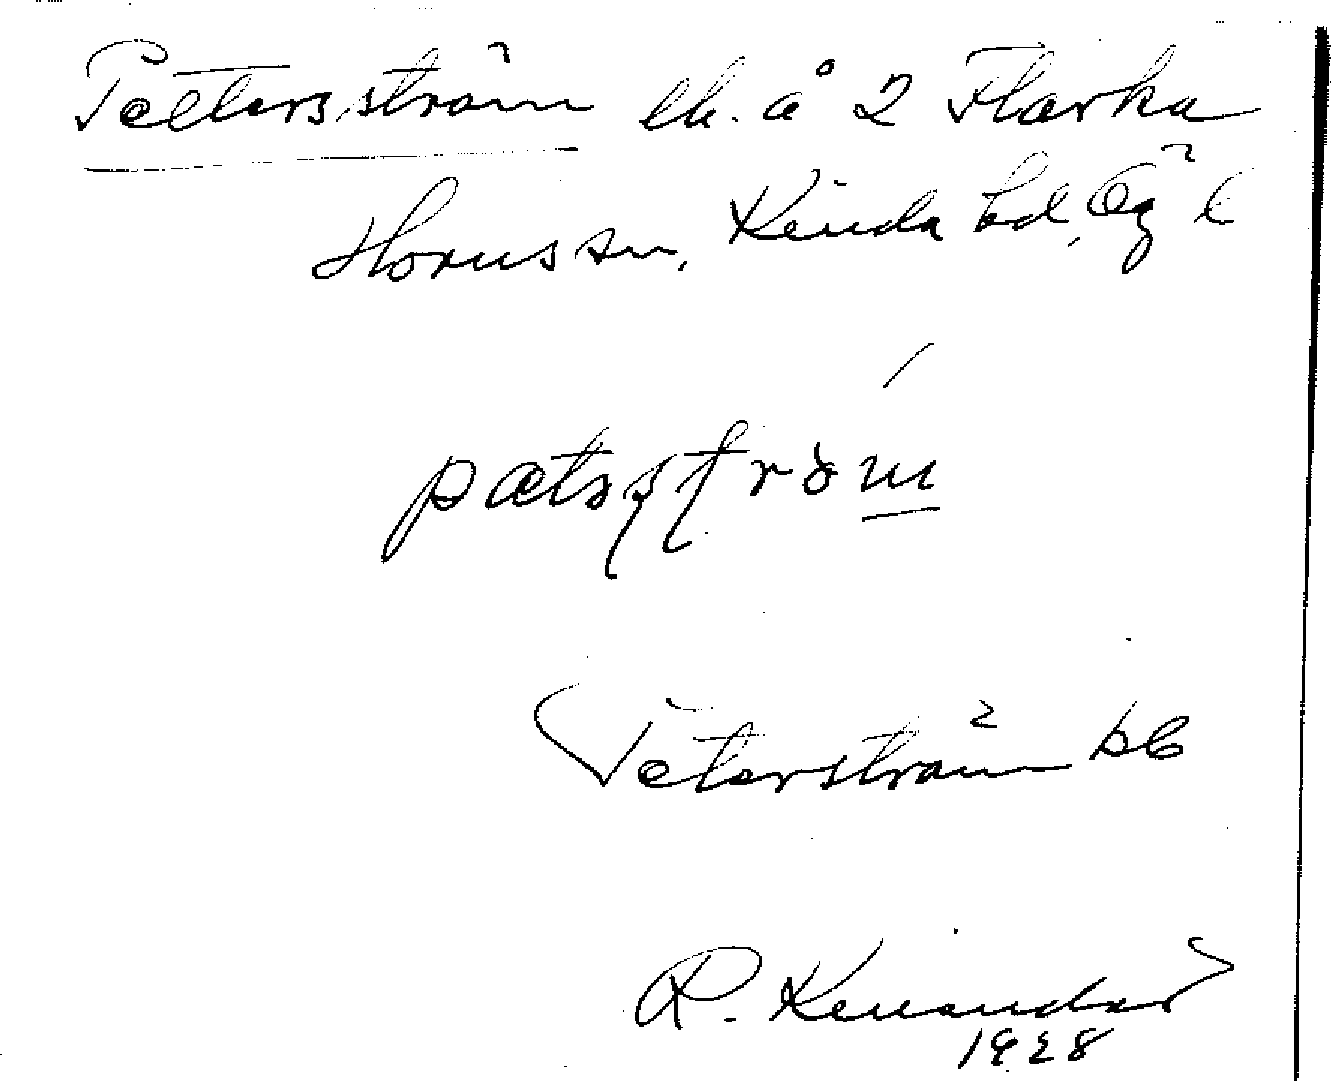 Pettersström lh. å 2 Flarka
Hornssn, Kinda hd, Ög l
pætsʂtröm
Peterström kb
R. Kenander
1928